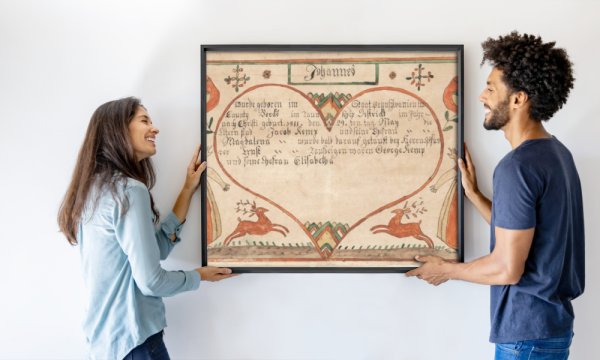 Johannes
wurde geboren im Staat Pensilvanien im
County Berks im Taun ship District im Jahr
nach Christi geburt den 29. ten tag May die
Eltern sind Jacob Kemp und seine Ehefrau
Magdalena wurde bald darauf getauft von Herrn Pfar
rer Taufzeugen waren George Kemp
und seine Ehefrau Elisabetha